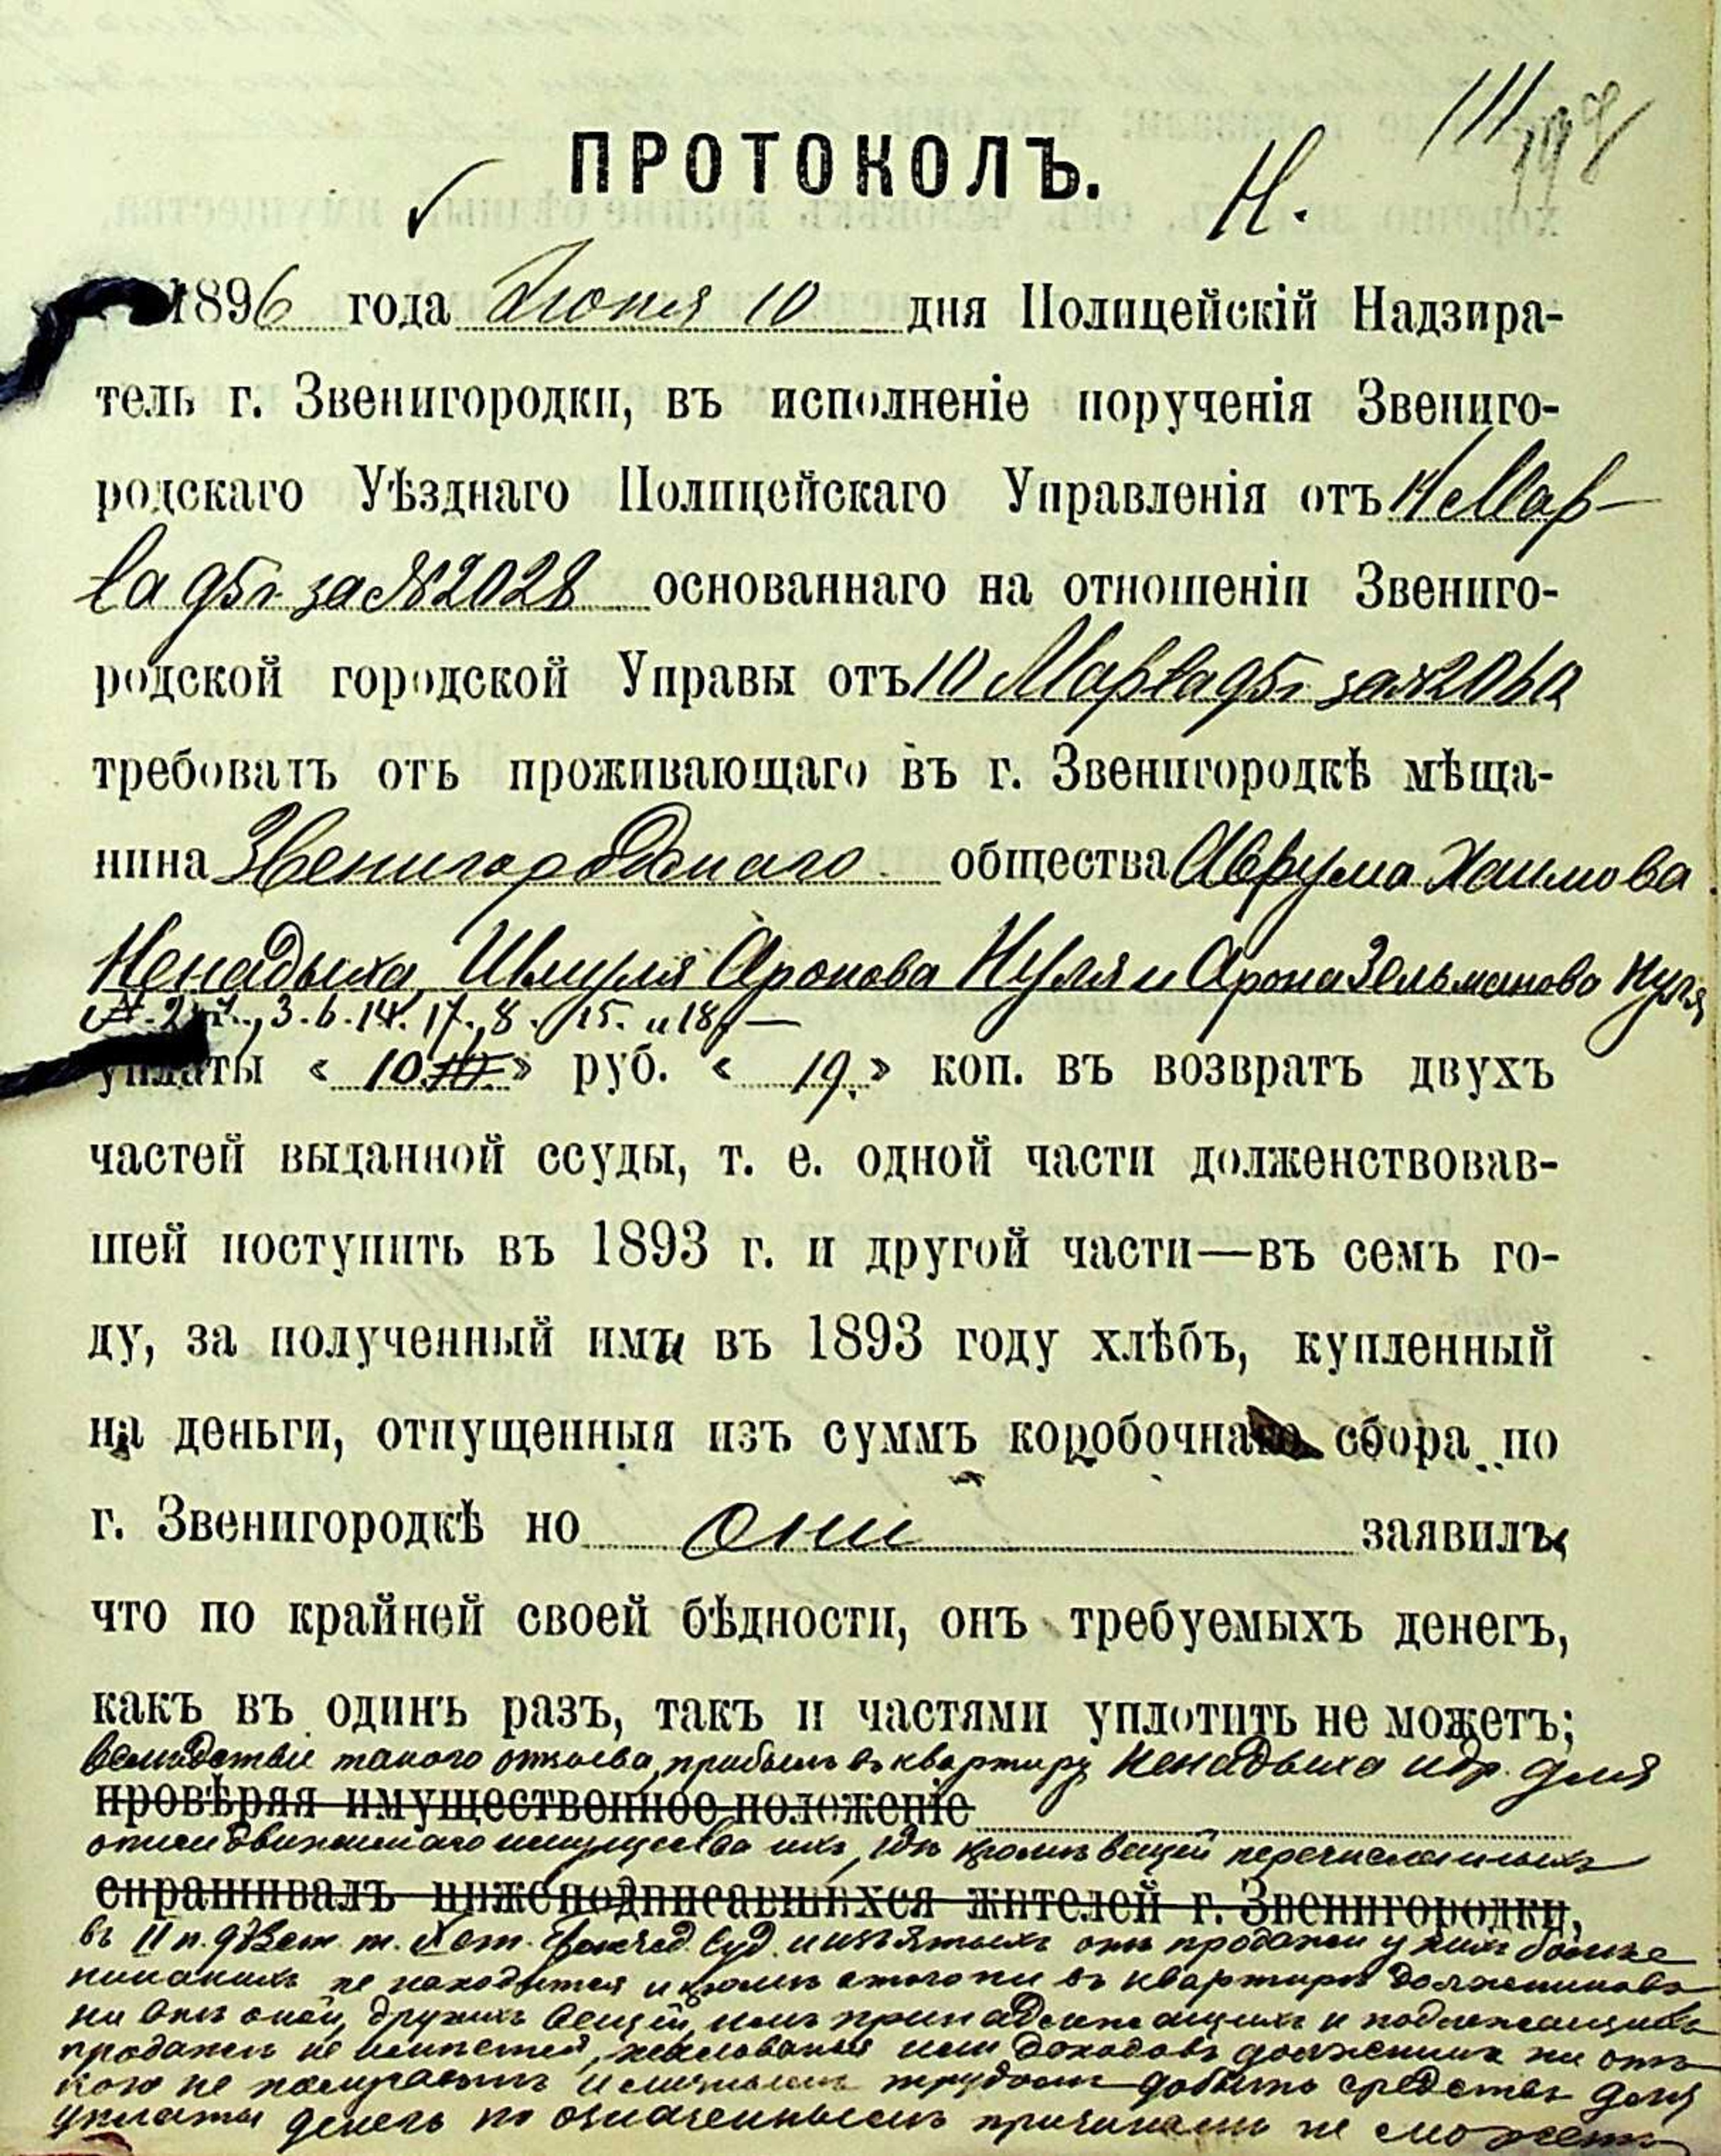 111
198
ПРОТОКОЛЪ.
Н.
1896 года Іюня 10 дня Полицейскій Надзира-
тель г. Звенигородки, въ исполненіе порученія Звениго-
родскаго Уѣзднаго Полицейскаго Управленія отъ 14 Мар-
та 95 г за № 2028 основаннаго на отношеніи Звениго-
родской городской Управы отъ 10 Марта 95 г за №
требовать отъ проживающаго въ г. Звенигородкѣ мѣща-
нина Звенигородскаго общества Аврума Хаимова
Ненадыха, Шмуля Аронова Нуля и Арона Зельманова Нуля
3. 6. 14. 17., 8. 15. и 18, —
уплаты « 10 » руб. « 19. » коп. въ возвратъ двухъ
частей выданной ссуды, т. е. одной части долженствовав-
шей поступить въ 1893 г. и другой части—въ семъ го-
ду, за полученный ими въ 1893 году хлѣбъ, купленный
на деньги, отпущенныя изъ суммъ коробочнаго сбора по
г. Звенигородкѣ но они заявили
что по крайней своей бѣдности, онъ требуемыхъ денегъ,
какъ въ одинъ разъ, такъ и частями уплотить не можетъ;
вслѣдствіе такого отзыва, прибылъ въ квартиру Ненадыха и др. для
провѣряя имущественное положеніе
описи движимаго имущества ихъ, гдѣ кромѣ вещей перечисленныхъ
спрашивалъ нижеподписавшихся жителей г. Звенигородки,
въ II п. 973 ст. т. X ст. Суд. и изъятыхъ отъ продажи у нихъ больше
никакихъ не находится и кромѣ этого ни въ квартирѣ должниковъ
ни внѣ оной, другихъ вещей, имъ принадлежащихъ и подлежащихъ
продажѣ не имѣется, жалованья или доходовъ должники ни отъ
кого не получаютъ и личнымъ трудомъ добыть средства для
уплаты денегъ по означеннымъ причинамъ не можетъ